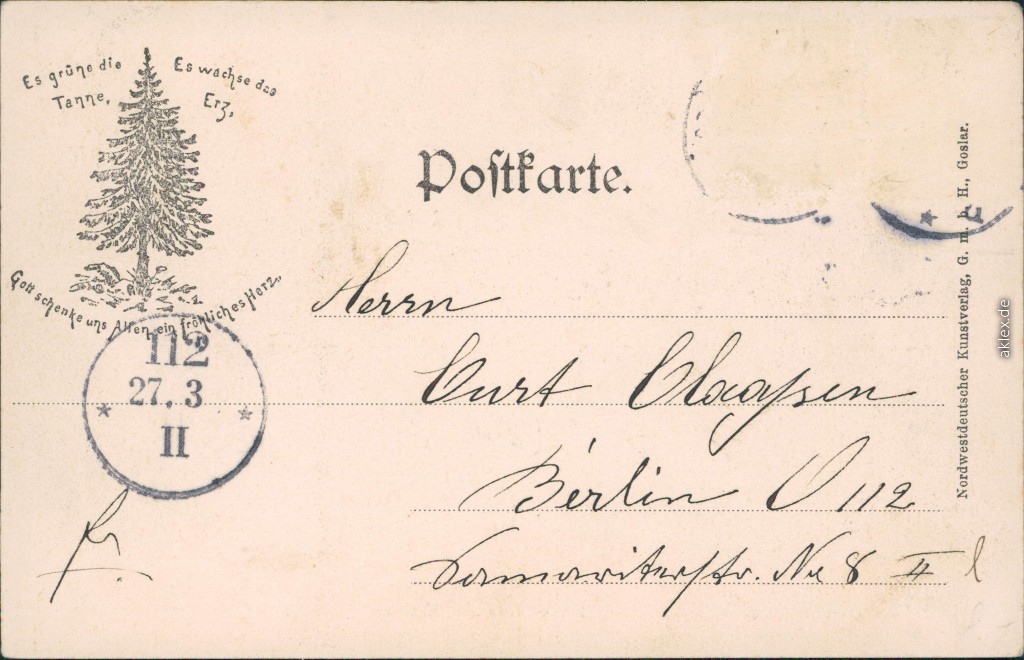 Es grüne die
Tanne,
Es wachse das
Erz,
Gott schenke uns Allen ein fröhliches Herz.
Postkarte.
Herrn
Curt Claassen
Berlin O 112
Samariterstr. No 8 II l
112
27. 3
II
Nordwestdeutscher Kunstverlag, G. m. b. H., Goslar.
aklex.de